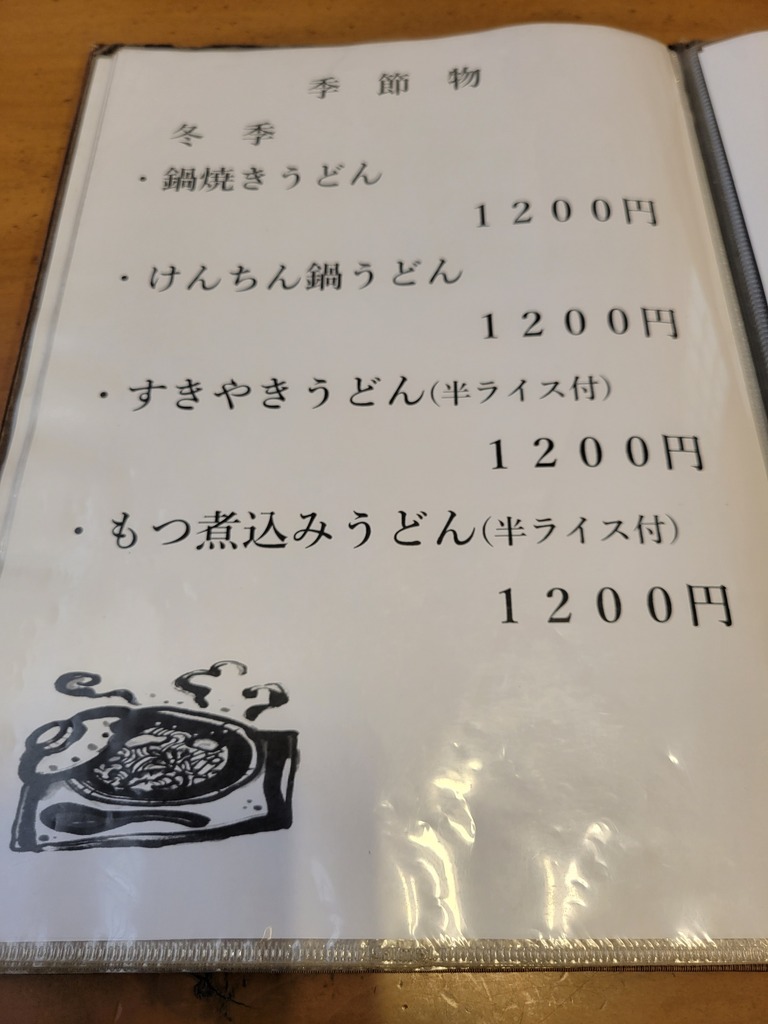 季　節　物
冬　季
・鍋焼きうどん
１２００円
・けんちん鍋うどん
１２００円
・すきやきうどん(半ライス付)
１２００円
・もつ煮込みうどん(半ライス付)
１２００円